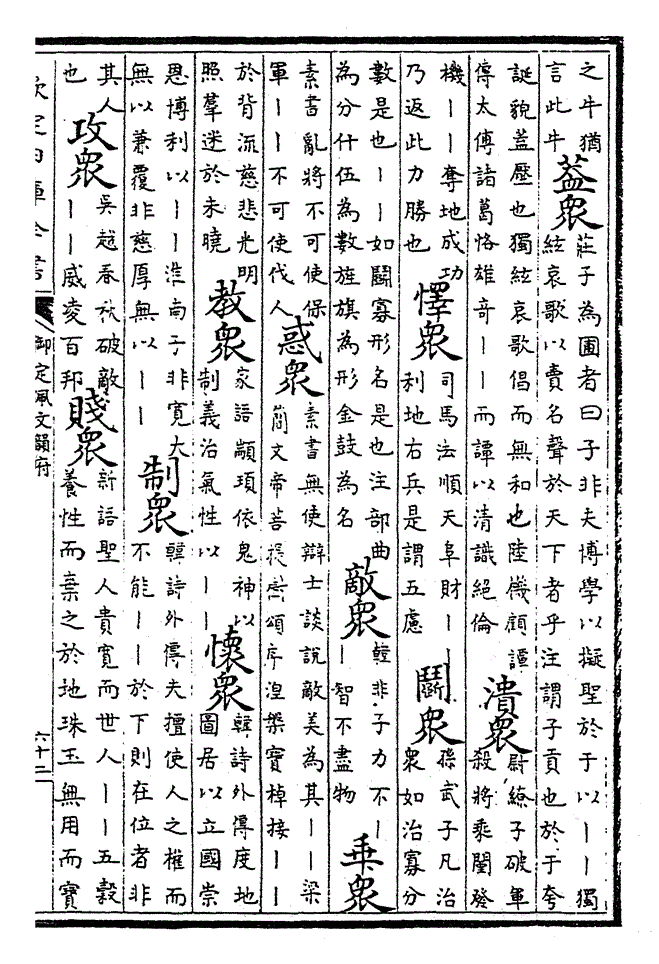 之牛猶
言此牛
葢衆
莊子為圃者曰子非夫博學以擬聖於于以丨丨獨
絃哀歌以賣名聲於天下者乎注謂子貢也於于夸
誕貌葢壓也獨絃哀歌倡而無和也陸機顧譚
傳太傅諸葛恪雄奇丨丨而譚以清識絕倫
潰衆
尉繚子破軍
殺將乘闉發
機丨丨奪地成功
乃返此力勝也
懌衆
司馬法順天阜財丨丨
利地右兵是謂五慮
鬭衆
孫武子凡治
衆如治寡分
數是也丨丨如鬭寡形名是也注部曲
為分什伍為數旌旗為形金鼓為名
敵衆
韓非子力不丨
丨智不盡物
乗衆
素書亂將不可使保
軍丨丨不可使代人
惑衆
素書無使辯士談說敵美為其丨丨梁
簡文帝菩提樹頌序湼槃寶棹接丨丨
於背流慈悲光明
照羣迷於未曉
教衆
家語顓頊依鬼神以
制義治氣性以丨丨
懷衆
韓詩外傳度地
圖居以立國崇
恩博利以丨丨淮南子非寬大
無以兼覆非慈厚無以丨丨
制衆
韓詩外傳夫擅使人之權而
不能丨丨於下則在位者非
其人
也
攻衆
吳越春秋破敵
丨丨威凌百邦
賤衆
新語聖人貴寬而世人丨丨五穀
養性而棄之於地珠玉無用而寶
欽定四庫全書
御定佩文韻府
六十二